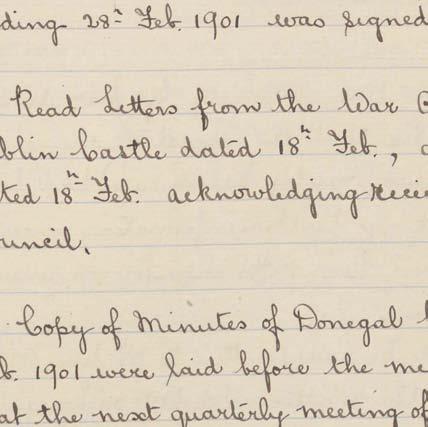 ding 28th Feb. 1901 was signed
Read Letters from the War
blin Castle dated 18th Feb.,
ted 18th Feb. acknowledging recei
uncil.
Copy of Minutes of Donegal
b. 1901 were laid before the me
at the next quarterly meeting of